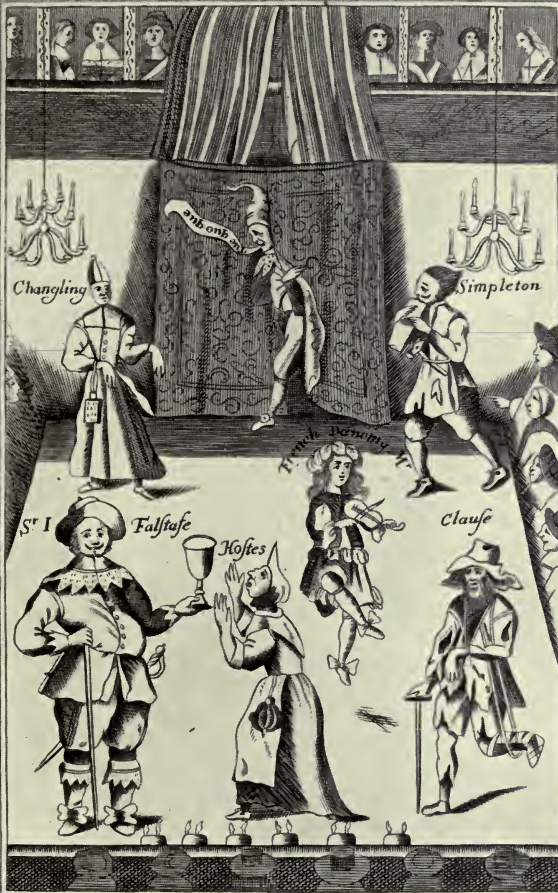 Tu quo que
Changling
Simpleton
French Dancing Mr
Sr I Falſtafe
Hoſtes
Clauſe